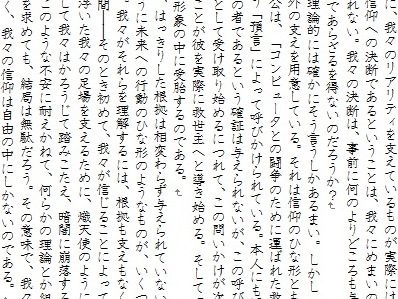 に、我々のリアリティを支えているものが実際に
信仰への決断であるということは、我々にめまいの
れない。我々の決断は、事前に何のよりどころも
であらざるを得ないのだろうか?
理論的には確かにそう言うしかあるまい。しかし
外の支えを用意している。それは信仰のひな形とも
公は、「コンピュータとの闘争のために運ばれた救
り「預言」によって呼びかけられている。本人にも
の者であるという確証は与えられないが、この呼び
として受け取り始めるにつれて、この問いかけが次
ことが彼を実際に救世主へと導き始める。そして
形象の中に受胎するのである。
はっきりした根拠は相変わらず与えられていない
うに未来への行動のひな形のようなものが、いくつ
。我々がそれらを理解するには、根拠も支えもなく
間――そのとき初めて、我々が信じることによって
浮いた我々の足場を支えるために、熾天使のように
して我々はかろうじて踏みこたえ、暗闇に崩落する
このような不安に耐えかねて、何らかの理論とか組
を求めても、結局は無駄だろう。その意味で、我々
く、我々の信仰は自由の中にしかないのである。